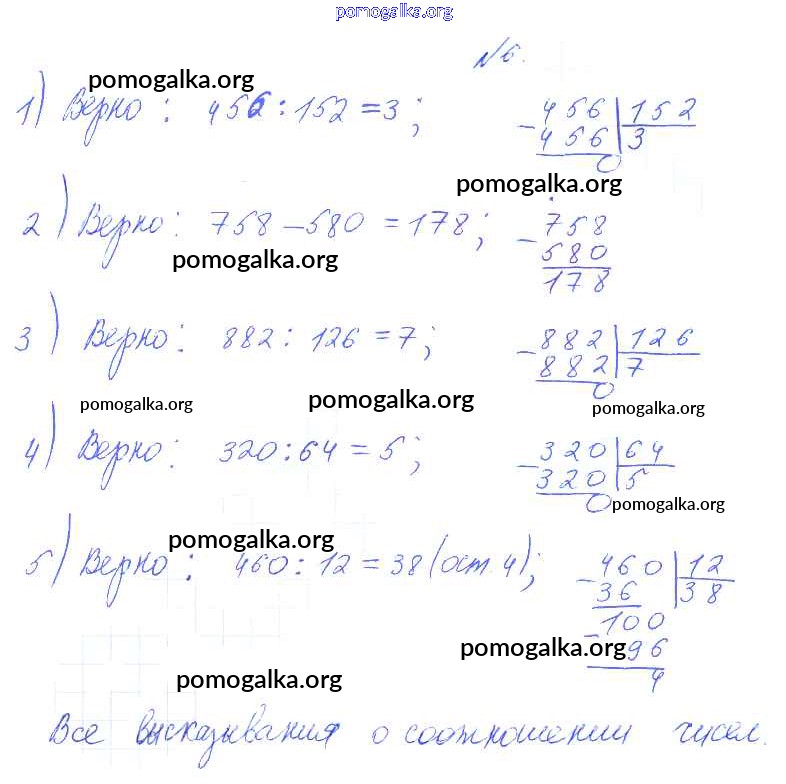 pomogalka.org
№6.
pomogalka.org
1) Верно : 456 : 152 = 3 ; - 456 | 152
456 | 3
0
pomogalka.org
2) Верно : 758 - 580 = 178 ; - 758
580
pomogalka.org
178
3) Верно : 882 : 126 = 7 ; - 882 | 126
882 | 7
0
pomogalka.org pomogalka.org pomogalka.org
4) Верно : 320 : 64 = 5 ; - 320 | 64
320 | 5
0 pomogalka.org
pomogalka.org
5) Верно : 460 : 12 = 38 (ост. 4) ; - 460 | 12
36 | 38
100
pomogalka.org
- 96
pomogalka.org
4
Все высказывания о соотношении чисел.